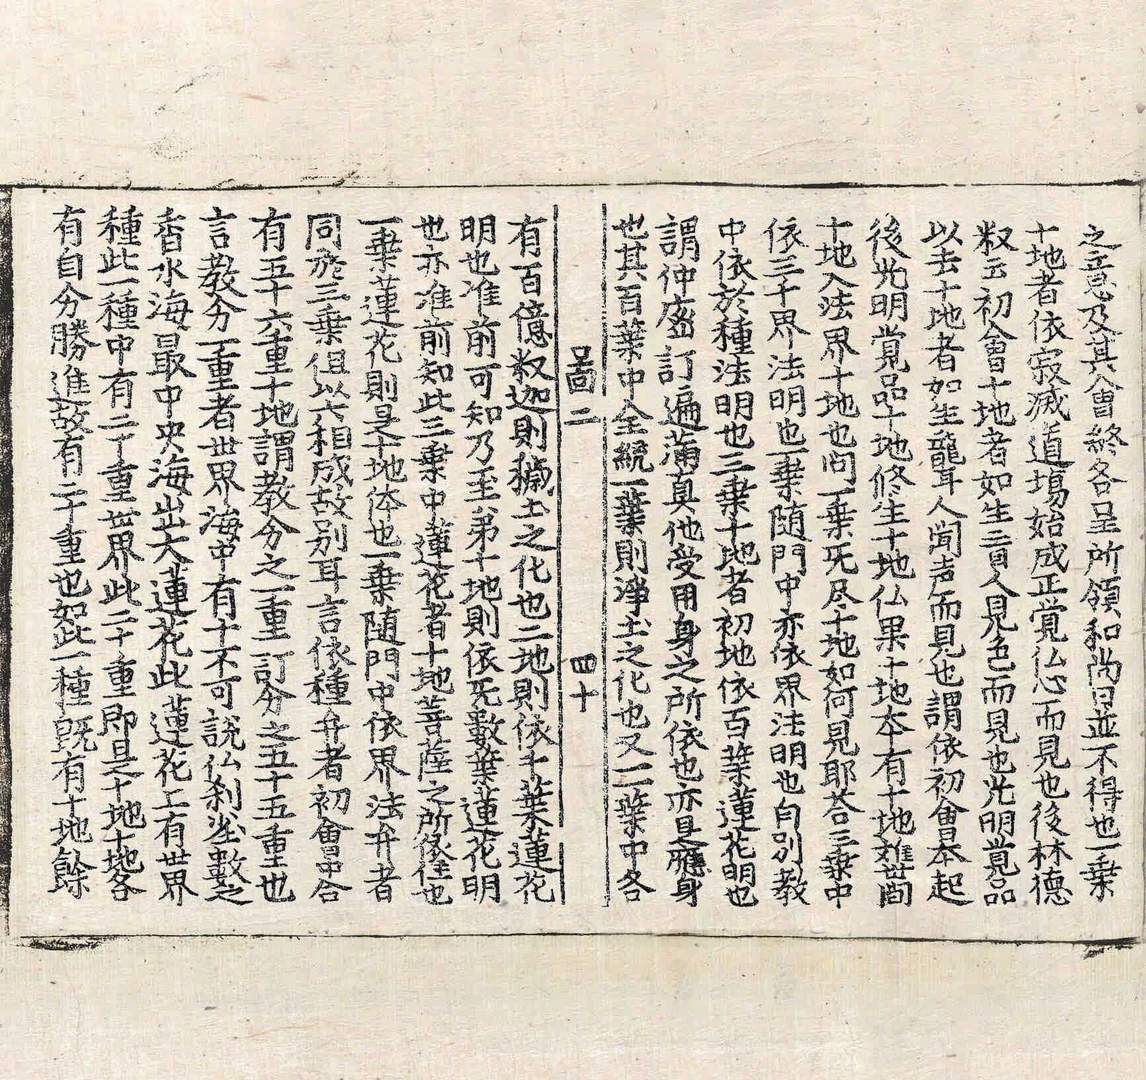 之意及其會終各呈所領和尚曰並不得也一乗
十地者依寂滅道場始成正覚仏心而見也後林德
釈云初會十地者如生盲人見色而見也光明覚品
以去十地者如生聾耳人聞声而見也謂依初會本起
後光明覚品十地修生十地仏果十地本有十地雖世間
十地入法界十地也问一乗旡尽十地如何見耶荅三乗中
依三千界法明也一乗随門中亦依界法明也自別教
中依於種法明也三乗十地者初地依百葉蓮花明也
謂仲盔訂遍蒲真他受用身之所依也亦是應身
也其百葉中全統一葉則浄土之化也又一一葉中各
啚二 四十
有百億釈迦則穢土之化也二地則依千葉蓮花
明也准前可知乃至苐十地則依旡數葉蓮花明
也亦准前知此三乗中蓮花者十地菩薩之所依住也
一乗蓮花則是十地体也一乗随門中依界法弁者
同於三乗但以六相成故別耳言依種弁者初會中合
有五十六重十地謂教分之一重訂分之五十五重也
言教分一重者世界海中有十不可說仏刹𡋯數之
香水海最中央海出大蓮花此蓮花上有世界
種此一種中有二十重世界此二十重即是十地十地各
有自分勝進故有二十重也如此一種旣有十地餘